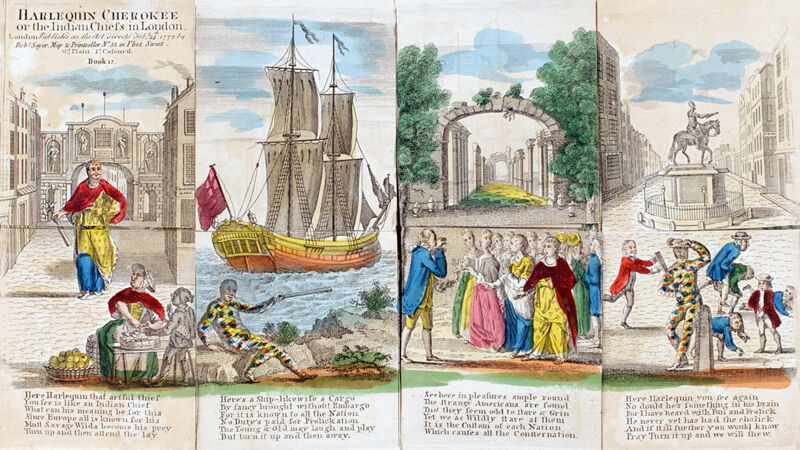 HARLEQUIN CHEROKEE
or the Indian Chiefs in London.
London Publish'd as the Act directs Feb. 24th 1772 by
Robt. Sayer Map & Printseller No. 53, in Fleet Street.
6d. Plain. 1s. Colour'd.
Book 12.
Here Harlequin that artful thief
You see is like an Indian Chief
What can his meaning be for this
Since Europe all is known for his
Must Savage Wilds become his prey
Turn up and then attend the lay.
Here's a Ship likewise a Cargo
By fancy brought without Embargo
For it is known to all the Nation
No Duty's paid for Frolickation
The Young & Old may laugh and play
But turn it up and then away.
See here in pleasures ample round
The strange Americans are found
Tho' they seem odd to stare & Grin
Yet we as Wildly stare at them
It is the Custom of each Nation
Which causes all the Consternation.
Here Harlequin you see again
No doubt he's something in his brain
For I have heard with Fun and Frolick
He never yet has had the cholick
And if still further you would know
Pray Turn it up and we will shew.